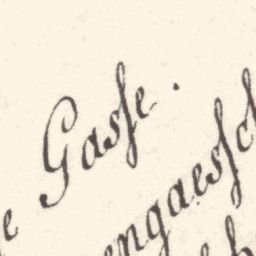 e Gasse.
engaessc